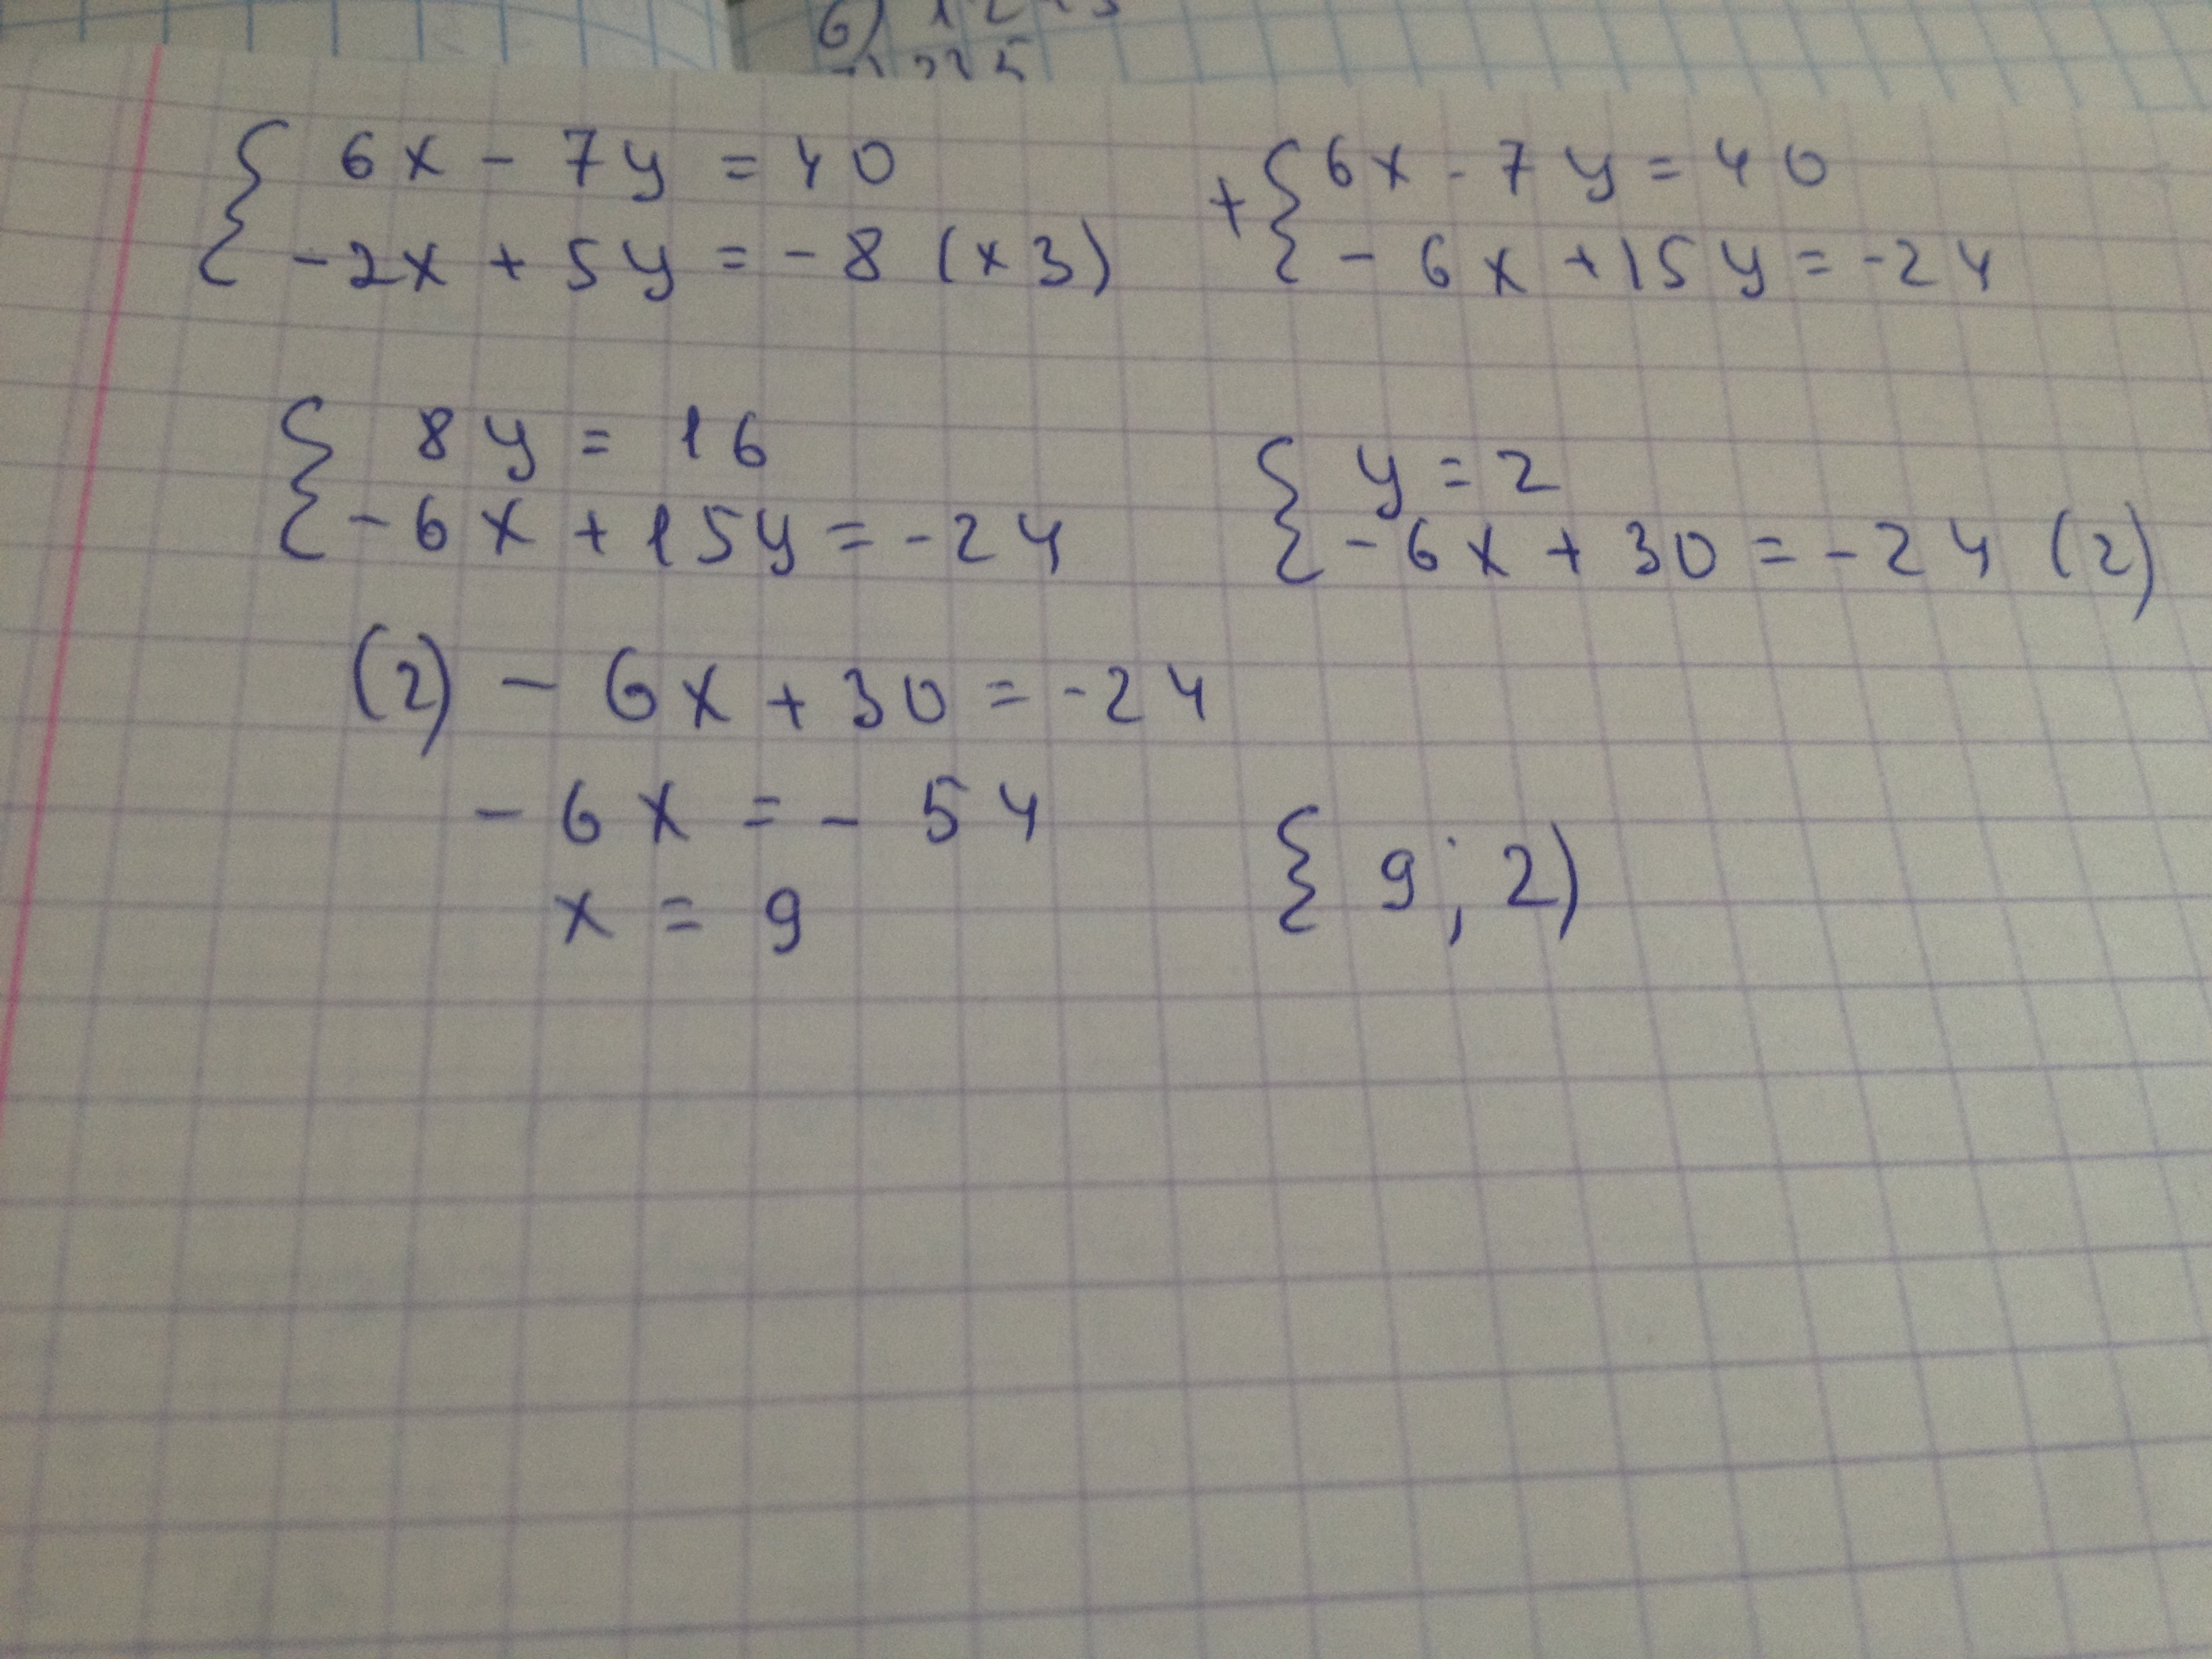 6x - 7y = 40
-2x + 5y = -8 (x3)
+ { 6x - 7y = 40
- 6x + 15y = -24
{ 8y = 16
-6x + 15y = -24
{ y = 2
-6x + 30 = -24 (2)
(2) - 6x + 30 = -24
-6x = - 54
x = 9
{ 9 ; 2)